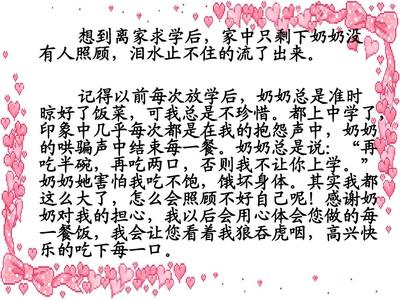 想到离家求学后，家中只剩下奶奶没
有人照顾，泪水止不住的流了出来。
记得以前每次放学后，奶奶总是准时
晾好了饭菜，可我总是不珍惜。都上中学了，
印象中几乎每次都是在我的抱怨声中，奶奶
的哄骗声中结束每一餐。奶奶总是说：“再
吃半碗，再吃两口，否则我不让你上学。”
奶奶她害怕我吃不饱，饿坏身体。其实我都
这么大了，怎么会照顾不好自己呢！感谢奶
奶对我的担心，我以后会用心体会您做的每
一餐饭，我会让您看着我狼吞虎咽，高兴快
乐的吃下每一口。